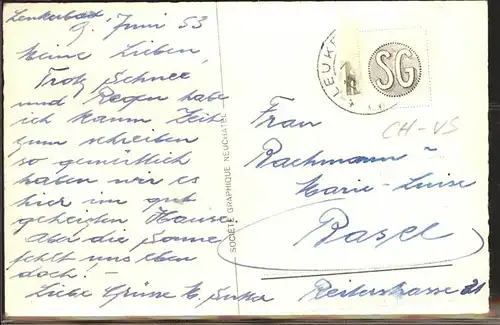 Leukerbad 9. Juni 53
Meine Lieben,
Trotz Schnee
und Regen habe
ich kaum Zeit
zum schreiben
so gemütlich
haben wir es
hier im gut
geheizten Hause.
Aber die Sonne
fehlt uns eben
doch! –
Liebe Grüsse M.
SOCIÉTÉ GRAPHIQUE NEUCHATEL
LEUK
SG
CH-VS
Frau
Bachmann-
Marie-Luise
Basel
Reiterstrasse 31